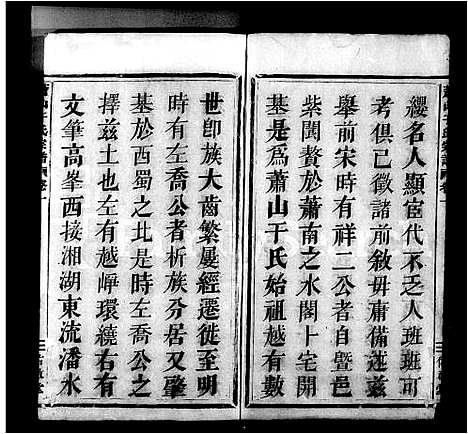 纓名人顯宦代不乏人班班可
考俱已徵諸前敘毋庸備述茲
舉前宋時有祥二公者自暨邑
紫閬贅於蕭南之水閣卜宅開
基是為蕭山于氏始祖越有數
世卽族大齒繁屢經遷徙至明
時有左喬公者析族分居又肇
基於西蜀之北是時左喬公之
擇茲土也左有越崢環繞右有
文筆高峯西接湘湖東流潘水